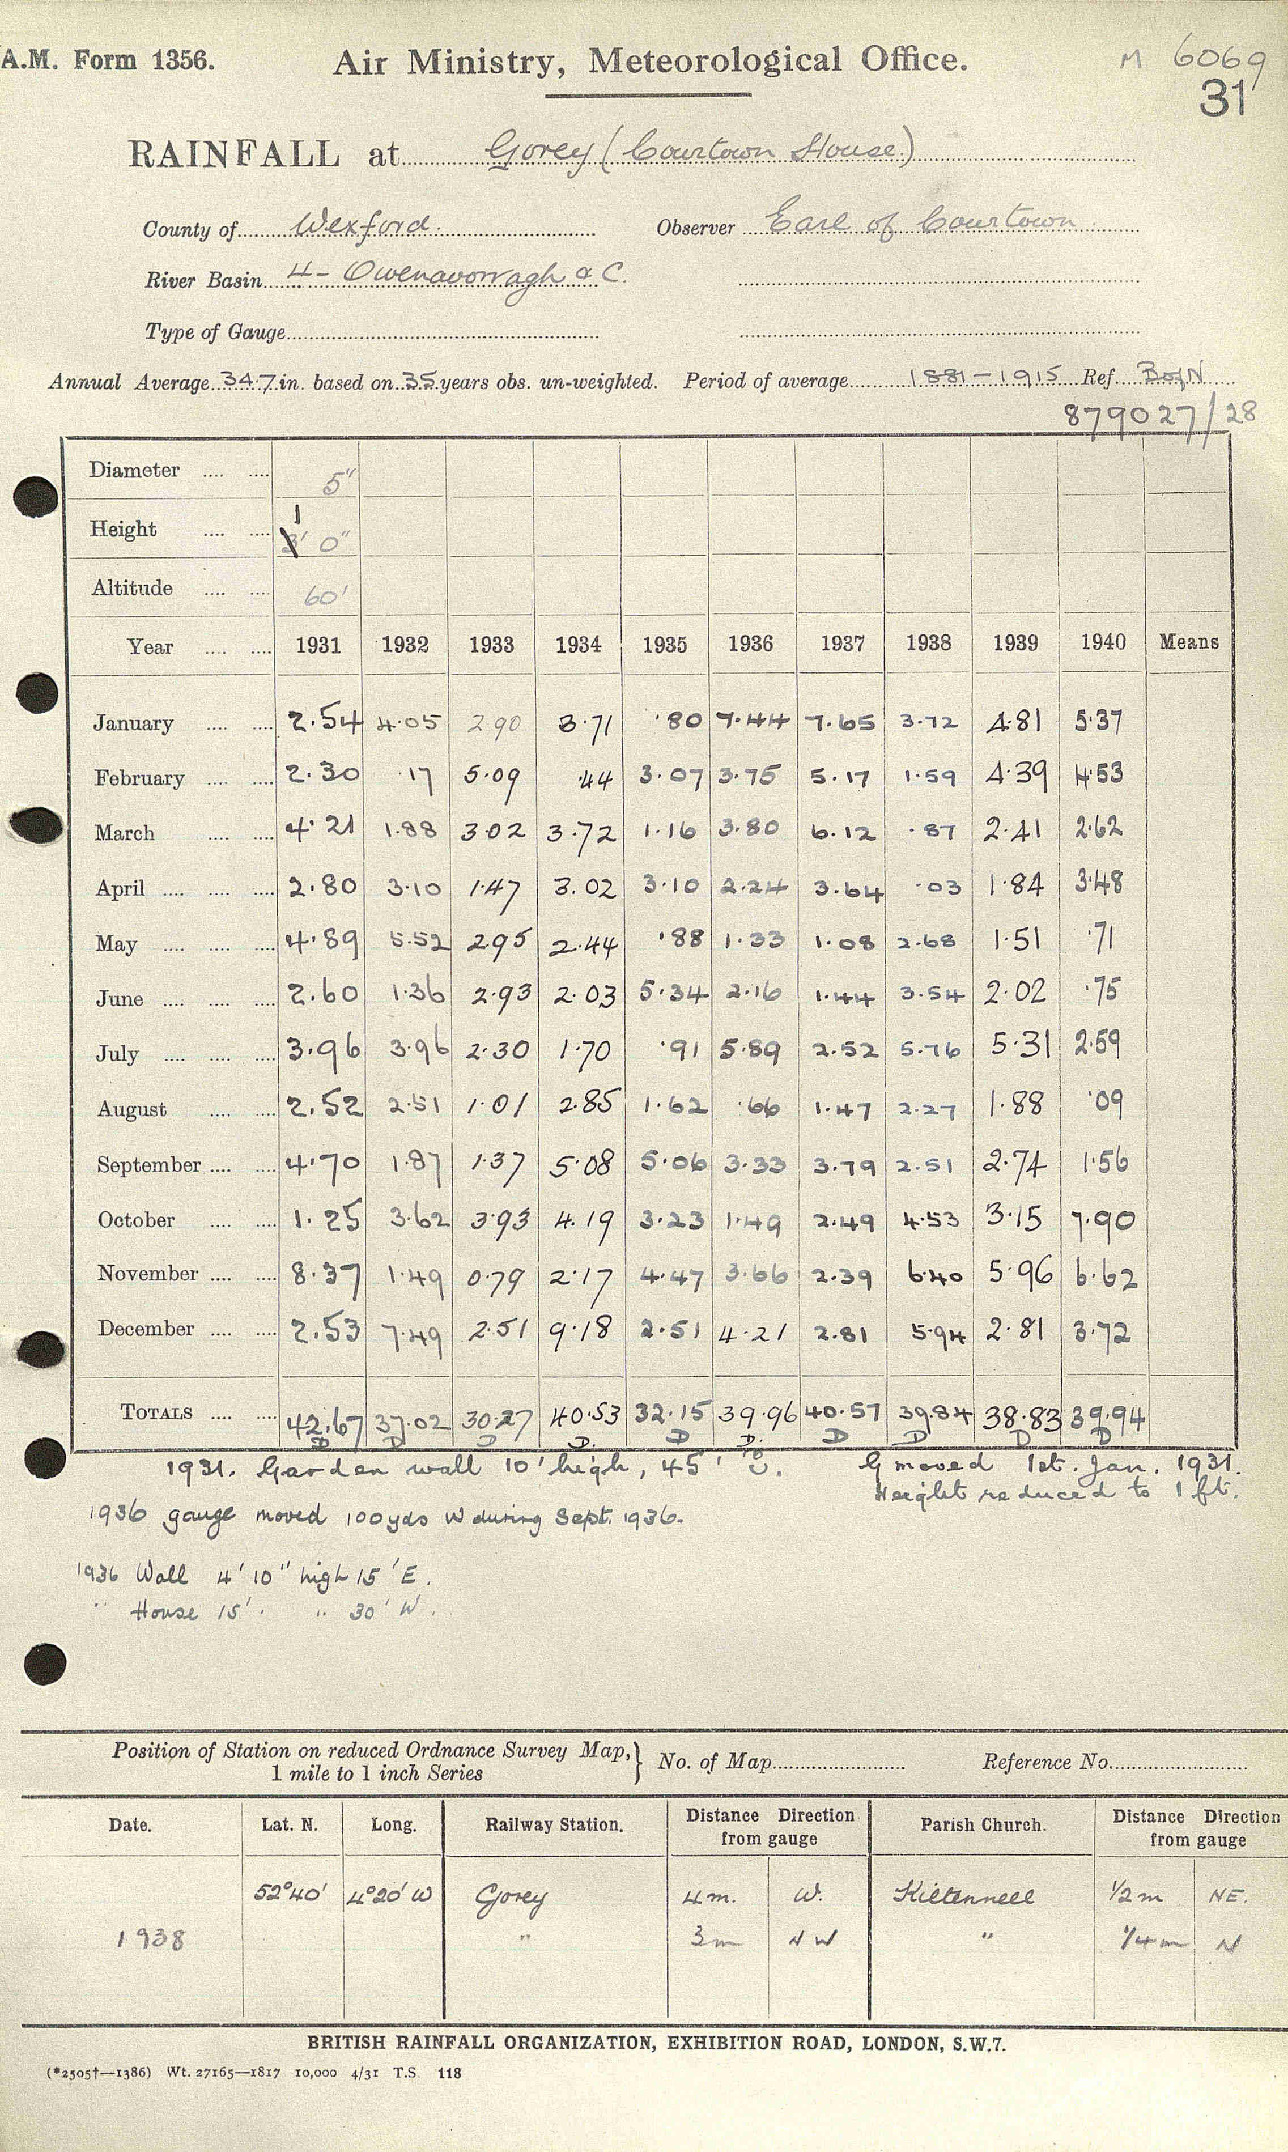 A.M. Form 1356. Air Ministry, Meteorological Office. M 6069
31
RAINFALL at Gorey (Courtown House)
County of Wexford. Observer Earl of Courtown
River Basin 4 - Owenavorragh &C.
Type of Gauge
Annual Average 34.7 in. based on 35 years obs. un-weighted. Period of average 1881-1915 Ref. B of N
879027/28
Diameter 5"
Height 1 3' 0"
Altitude 60'
Year 1931 1932 1933 1934 1935 1936 1937 1938 1939 1940 Means
January 2.54 4.05 2.90 3.71 .80 7.44 7.65 3.72 4.81 5.37
February 2.30 .17 5.09 .44 3.07 3.75 5.17 1.59 4.39 4.53
March 4.21 1.88 3.02 3.72 1.16 3.80 6.12 .87 2.41 2.62
April 2.80 3.10 1.47 3.02 3.10 2.24 3.64 .03 1.84 3.48
May 4.89 5.52 2.95 2.44 .88 1.33 1.08 2.68 1.51 .71
June 2.60 1.36 2.93 2.03 5.34 2.16 1.44 3.54 2.02 .75
July 3.96 3.96 2.30 1.70 .91 5.89 2.52 5.76 5.31 2.59
August 2.52 2.51 1.01 2.85 1.62 .66 1.47 2.27 1.88 .09
September 4.70 1.87 1.37 5.08 5.06 3.33 3.79 2.51 2.74 1.56
October 1.25 3.62 3.93 4.19 3.23 1.49 2.49 4.53 3.15 7.90
November 8.37 1.49 0.79 2.17 4.47 3.66 2.39 6.40 5.96 6.62
December 2.53 7.49 2.51 9.18 2.51 4.21 2.81 5.94 2.81 3.72
TOTALS 42.67 37.02 30.27 40.53 32.15 39.96 40.57 39.84 38.83 39.94
D D D D. D D. D D D D
1931. Garden wall 10' high, 45' G moved 1st. Jan. 1931.
Height reduced to 1 ft.
1936 gauge moved 100yds W during Sept. 1936.
1936 Wall 4' 10" high 15' E.
" House 15' " 30' W.
Position of Station on reduced Ordnance Survey Map, 1 mile to 1 inch Series } No. of Map Reference No.
Date. Lat. N. Long. Railway Station. Distance Direction from gauge Parish Church. Distance Direction from gauge
52°40' 4°20' W Gorey 4m. W. Kiltennell 1/2 m NE.
1938 " 3m N W " 1/4 m N
BRITISH RAINFALL ORGANIZATION, EXHIBITION ROAD, LONDON, S.W.7.
(*2505†—1386) Wt. 27165—1817 10,000 4/31 T.S. 118